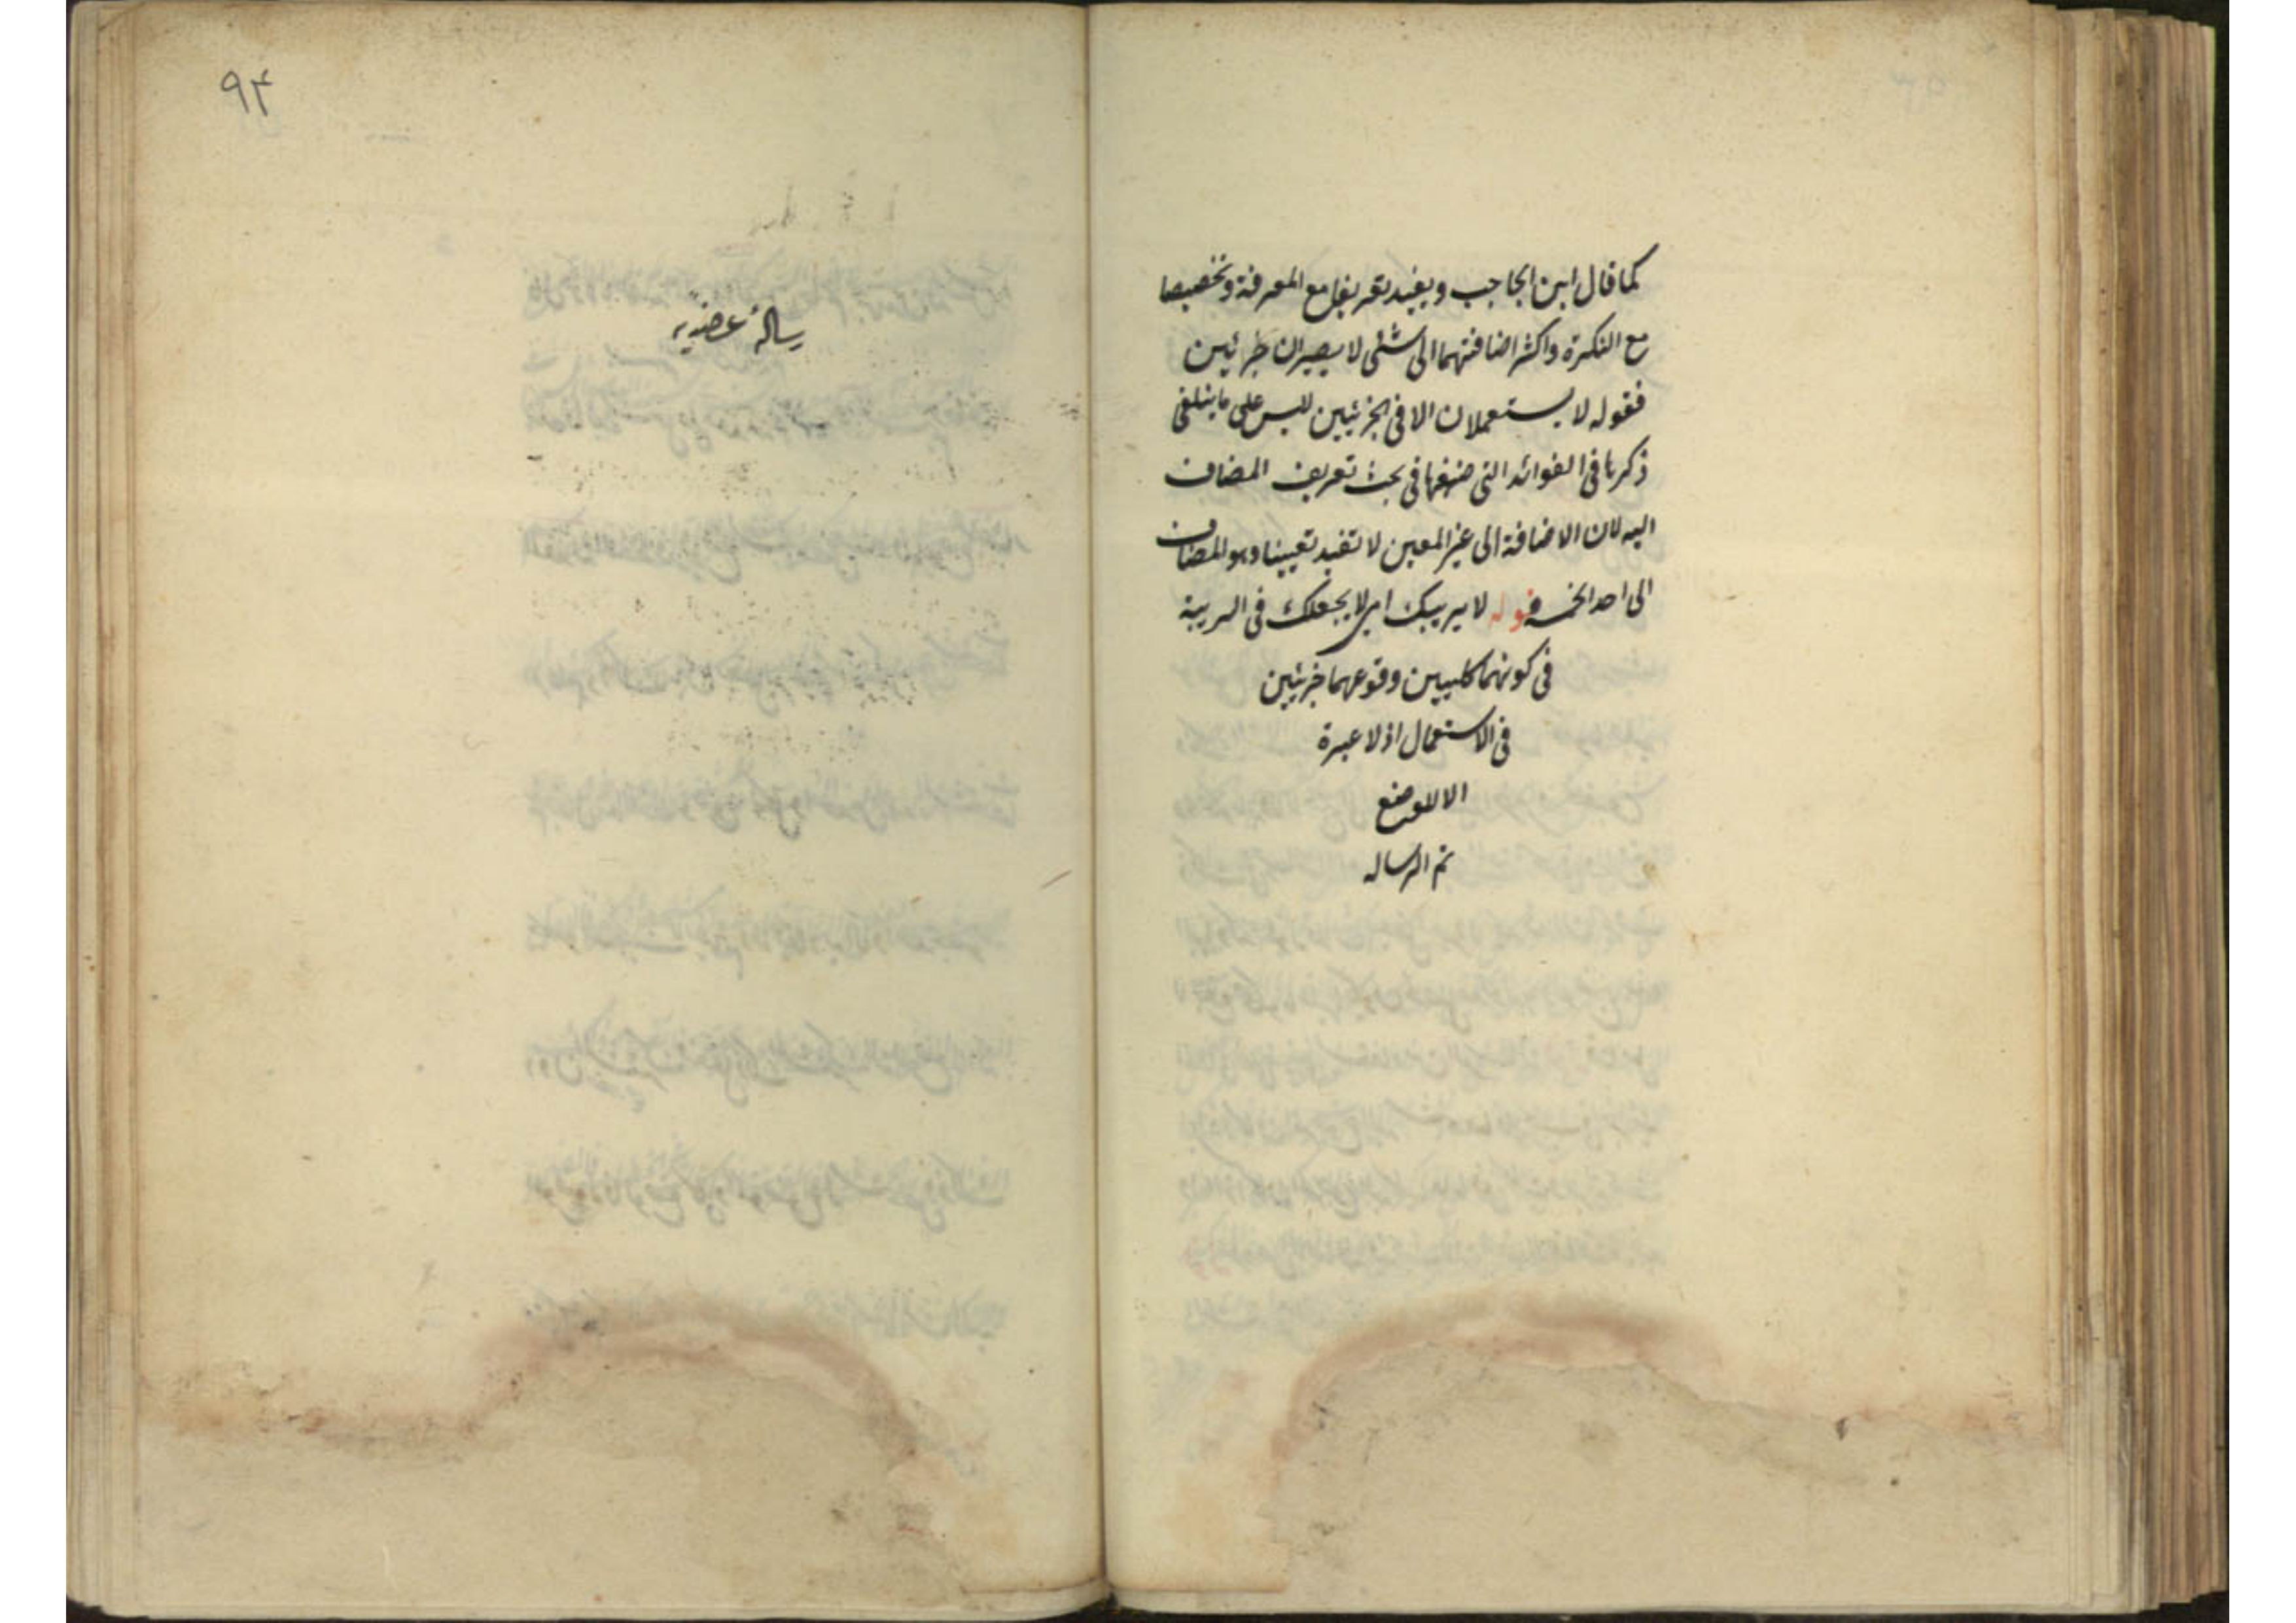 كما قال ابن الحاجب ويفيد تعريفا مع المعرفة وتخصيصا
مع النكرة واكثر اضافتهما الى شئ لا يصيران جزئيين
فقوله لا يستعملان الا فى الجزئيين ليس على ما ينبغى
ذكرنا فى الفوائد التى فى بحث تعريف المضاف
اليه لان الاضافة الى غير المعين لا تفيد تعيينا وهو المضاف
الى احد الخمسة قوله لا يريبك اى لا يجعلك فى الريبة
فى كونهما كليين وقوعهما جزئيين
فى الاستعمال اذ لا عبرة
الا للوضع
تم الرساله
۹۴
رسالۀ عضديه